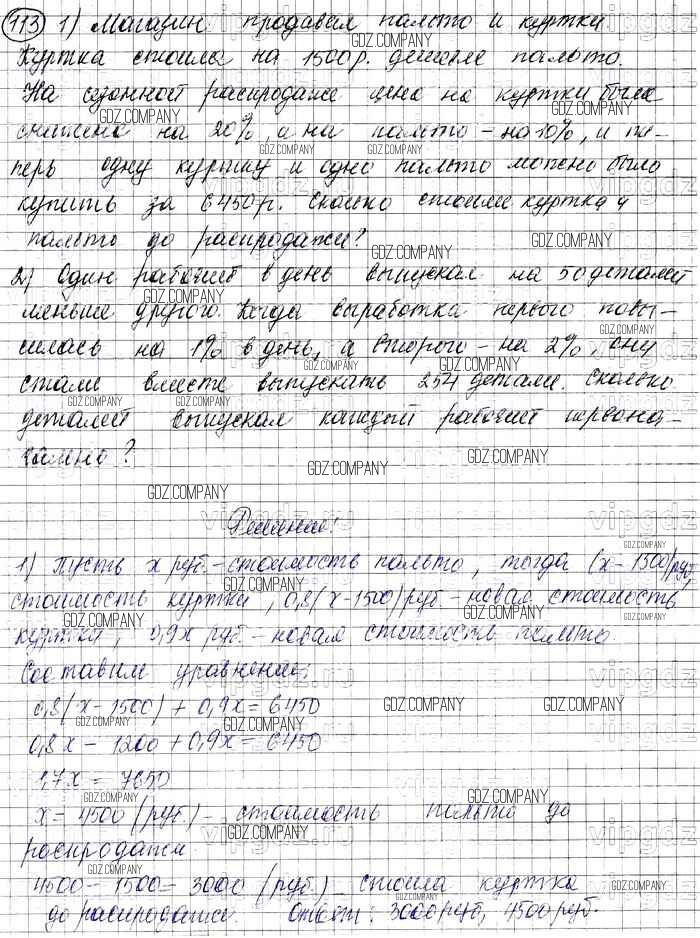 113 1) Магазин продавал пальто и куртки.
Куртка стоила на 1500р. дешевле пальто.
На сезонной распродаже цена на куртки была
снижена на 20%, а на пальто – на 10%, и те-
перь одну куртку и одно пальто можно было
купить за 6450р. Сколько стоили куртка и
пальто до распродажи?
2) Один рабочий в день выпускал на 50 деталей
меньше другого. Когда выработка первого повы-
силась на 1% в день, а второго – на 2%, они
стали вместе выпускать 254 детали. Сколько
деталей выпускал каждый рабочий первона-
чально?
Решение:
1) Пусть x руб. – стоимость пальто, тогда (x – 1500) руб.
стоимость куртки, 0,8(x – 1500) руб. – новая стоимость
куртки, 0,9x руб. – новая стоимость пальто
Составим уравнение:
0,8(x – 1500) + 0,9x = 6450
0,8x – 1200 + 0,9x = 6450
1,7x = 7650
x = 4500 (руб.) – стоимость пальто до
распродажи
4500 – 1500 = 3000 (руб.) – стоила куртка
до распродажи. Ответ: 3000 руб, 4500 руб.
GDZ.COMPANY
vipgdz.ru